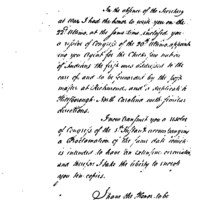 In the absence of the Secretary
at War I had the honor to write you on the
22d. Ultimo, at the same time, enclosed you
a resolve of Congress of the 20th Ultimo,
you
of Indians, the first was addressed to the
care of, and to be forwarded by the post
master at Richmond, and a duplicate to
Hillsborough North Carolina with similar
directions.
I now transmit you a resolve
of Congress of the 1st Instant accompanying
a Proclamation of the same date which
is intended to have an extensive circulation
and therefore I take the liberty to enclose
you ten copies.
I have the Honor to be